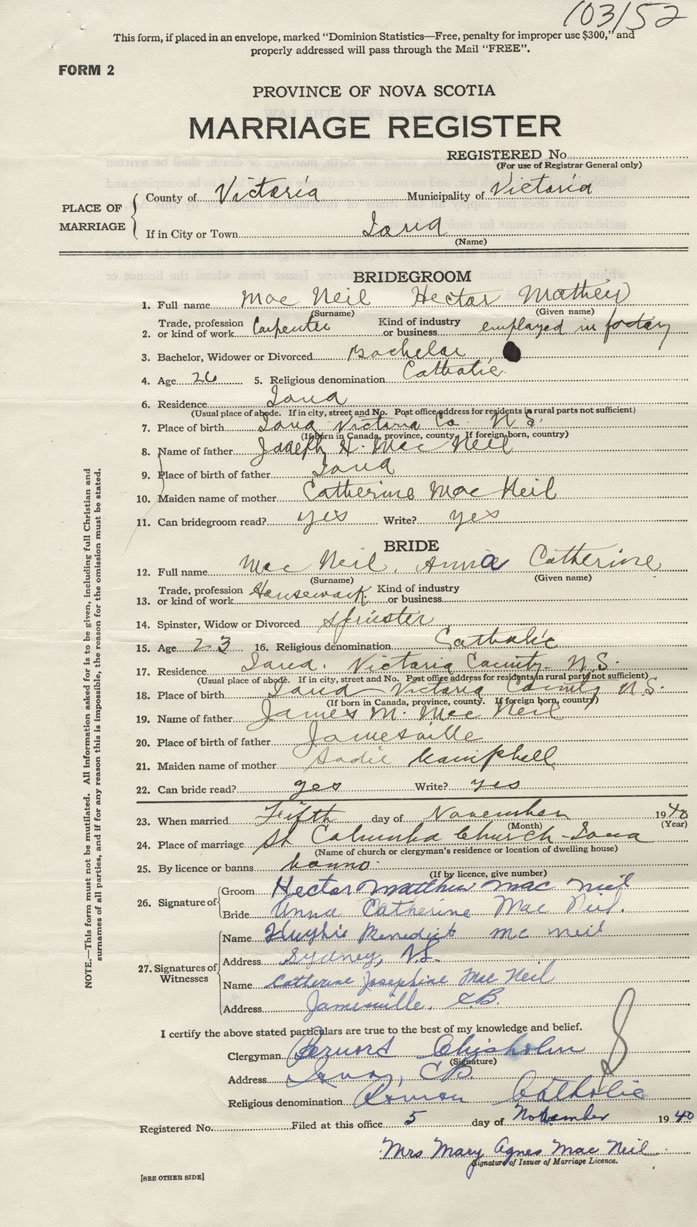 103/52
This form, if placed in an envelope, marked "Dominion Statistics—Free, penalty for improper use $300," and
properly addressed will pass through the Mail "FREE".
FORM 2
PROVINCE OF NOVA SCOTIA
MARRIAGE REGISTER
REGISTERED No.
(For use of Registrar General only)
PLACE OF MARRIAGE
County of Victoria Municipality of Victoria
If in City or Town Iona
(Name)
BRIDEGROOM
1. Full name Mac Neil Hector Mathew
(Surname) (Given name)
2. Trade, profession or kind of work Carpenter Kind of industry or business employed in
3. Bachelor, Widower or Divorced Bachelor
4. Age 26 5. Religious denomination Catholic
6. Residence Iona
(Usual place of abode. If in city, street and No. Post office address for residents in rural parts not sufficient)
7. Place of birth Iona Victoria Co N.S.
(If born in Canada, province, county. If foreign born, country)
8. Name of father Joseph H. Mac Neil
9. Place of birth of father Iona
10. Maiden name of mother Catherine Mac Neil
11. Can bridegroom read? yes Write? yes
BRIDE
12. Full name Mac Neil, Anna Catherine
(Surname) (Given name)
13. Trade, profession or kind of work Housework Kind of industry or business
14. Spinster, Widow or Divorced Spinster
15. Age 23 16. Religious denomination Catholic
17. Residence Iona. Victoria County N.S.
(Usual place of abode. If in city, street and No. Post office address for residents in rural parts not sufficient)
18. Place of birth Iona Victoria County N.S.
(If born in Canada, province, county. If foreign born, country)
19. Name of father James M. Mac Neil
20. Place of birth of father Jamesville
21. Maiden name of mother Sadie Campbell
22. Can bride read? yes Write? yes
23. When married Fifth day of November 1940
(Month) (Year)
24. Place of marriage St Columba Church - Iona
(Name of church or clergyman's residence or location of dwelling house)
25. By licence or banns banns
(If by licence, give number)
26. Signature of
Groom Hector Matthew Mac Neil
Bride Anna Catherine Mac Neil.
27. Signatures of Witnesses
Name Hughie Benedict Mc Neil
Address Sydney, N.S.
Name Catherine Josephine Mac Neil
Address Jamesville. C.B.
I certify the above stated particulars are true to the best of my knowledge and belief.
Clergyman Chisholm
(Signature)
Address Iona, C.B.
Religious denomination Roman Catholic
Registered No. Filed at this office 5 day of November 1940
Mrs Mary Agnes Mac Neil
Signature of Issuer of Marriage Licence.
[SEE OTHER SIDE]
NOTE.—This form must not be mutilated. All Information asked for is to be given, including full Christian and
surnames of all parties, and if for any reason this is impossible, the reason for the omission must be stated.